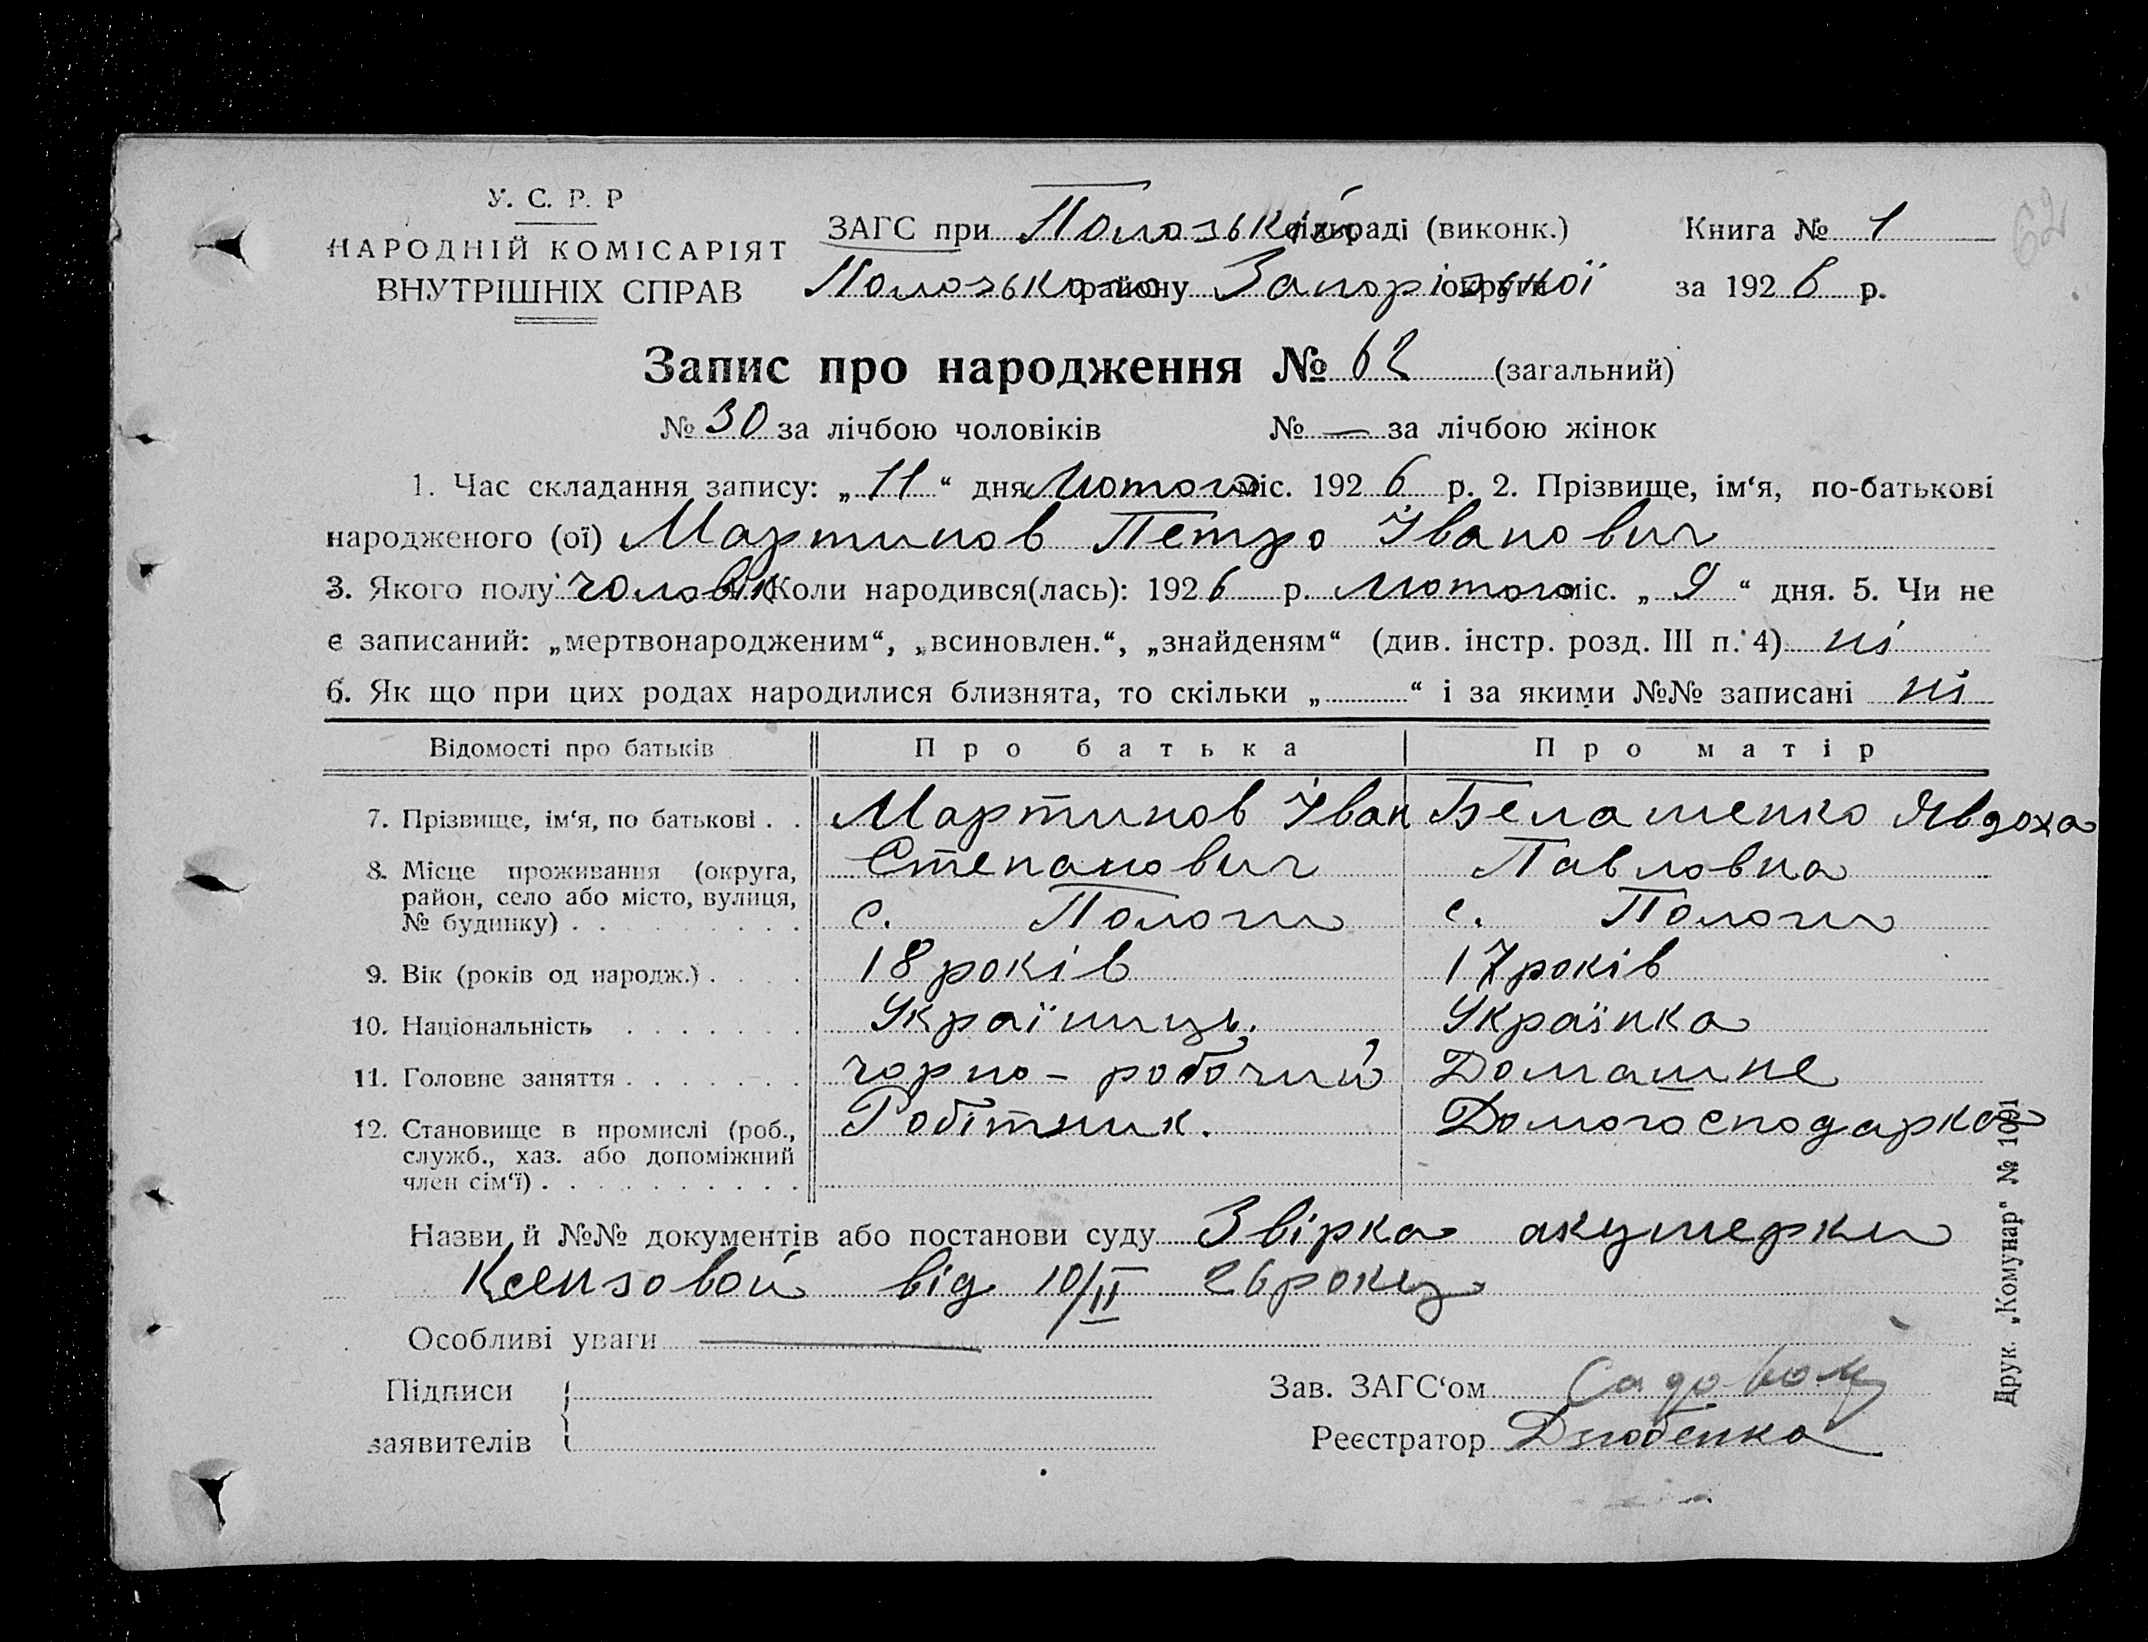 У. С. Р. Р
НАРОДНІЙ КОМІСАРІЯТ
ВНУТРІШНІХ СПРАВ
ЗАГС при Пологській сільраді (виконк.) Книга № 1
62
Пологського району Запорізької округи за 1926 р.
Запис про народження № 62 (загальний)
№ 30 за лічбою чоловіків № — за лічбою жінок
1. Час складання запису: „11“ дня Лютого міс. 1926 р. 2. Прізвище, ім‘я, по-батькові
народженого (ої) Мартинов Петро Іванович
3. Якого полу чоловік 4. Коли народився(лась): 1926 р. Лютого міс. „9“ дня. 5. Чи не
є записаний: „мертвонародженим“, „всиновлен.“, „знайденям“ (див. інстр. розд. III п. 4) ні
6. Як що при цих родах народилися близнята, то скільки „ “ і за якими №№ записані ні
Відомості про батьків Про батька Про матір
7. Прізвище, ім‘я, по батькові . . Мартинов Іван Белашенко Явдоха
Степанович Павловна
8. Місце проживання (округа, район, село або місто, вулиця, № будинку) . . . с. Пологи с. Пологи
9. Вік (років од народж.) . . . . 18 років 17 років
10. Національність . . . . . . . Україниць. Українка
11. Головне заняття . . . . . . . чорно-робочий Домашне
12. Становище в промислі (роб., служб., хаз. або допоміжний член сім‘ї) . . . Робітник. Домогосподарка
Назви й №№ документів або постанови суду Звірка акушерки
Ксензовой від 10/II 26 року
Особливі уваги —
Підписи
заявителів
Зав. ЗАГС‘ом
Реєстратор Дзюбенко
Друк. „Комунар“ № 1091